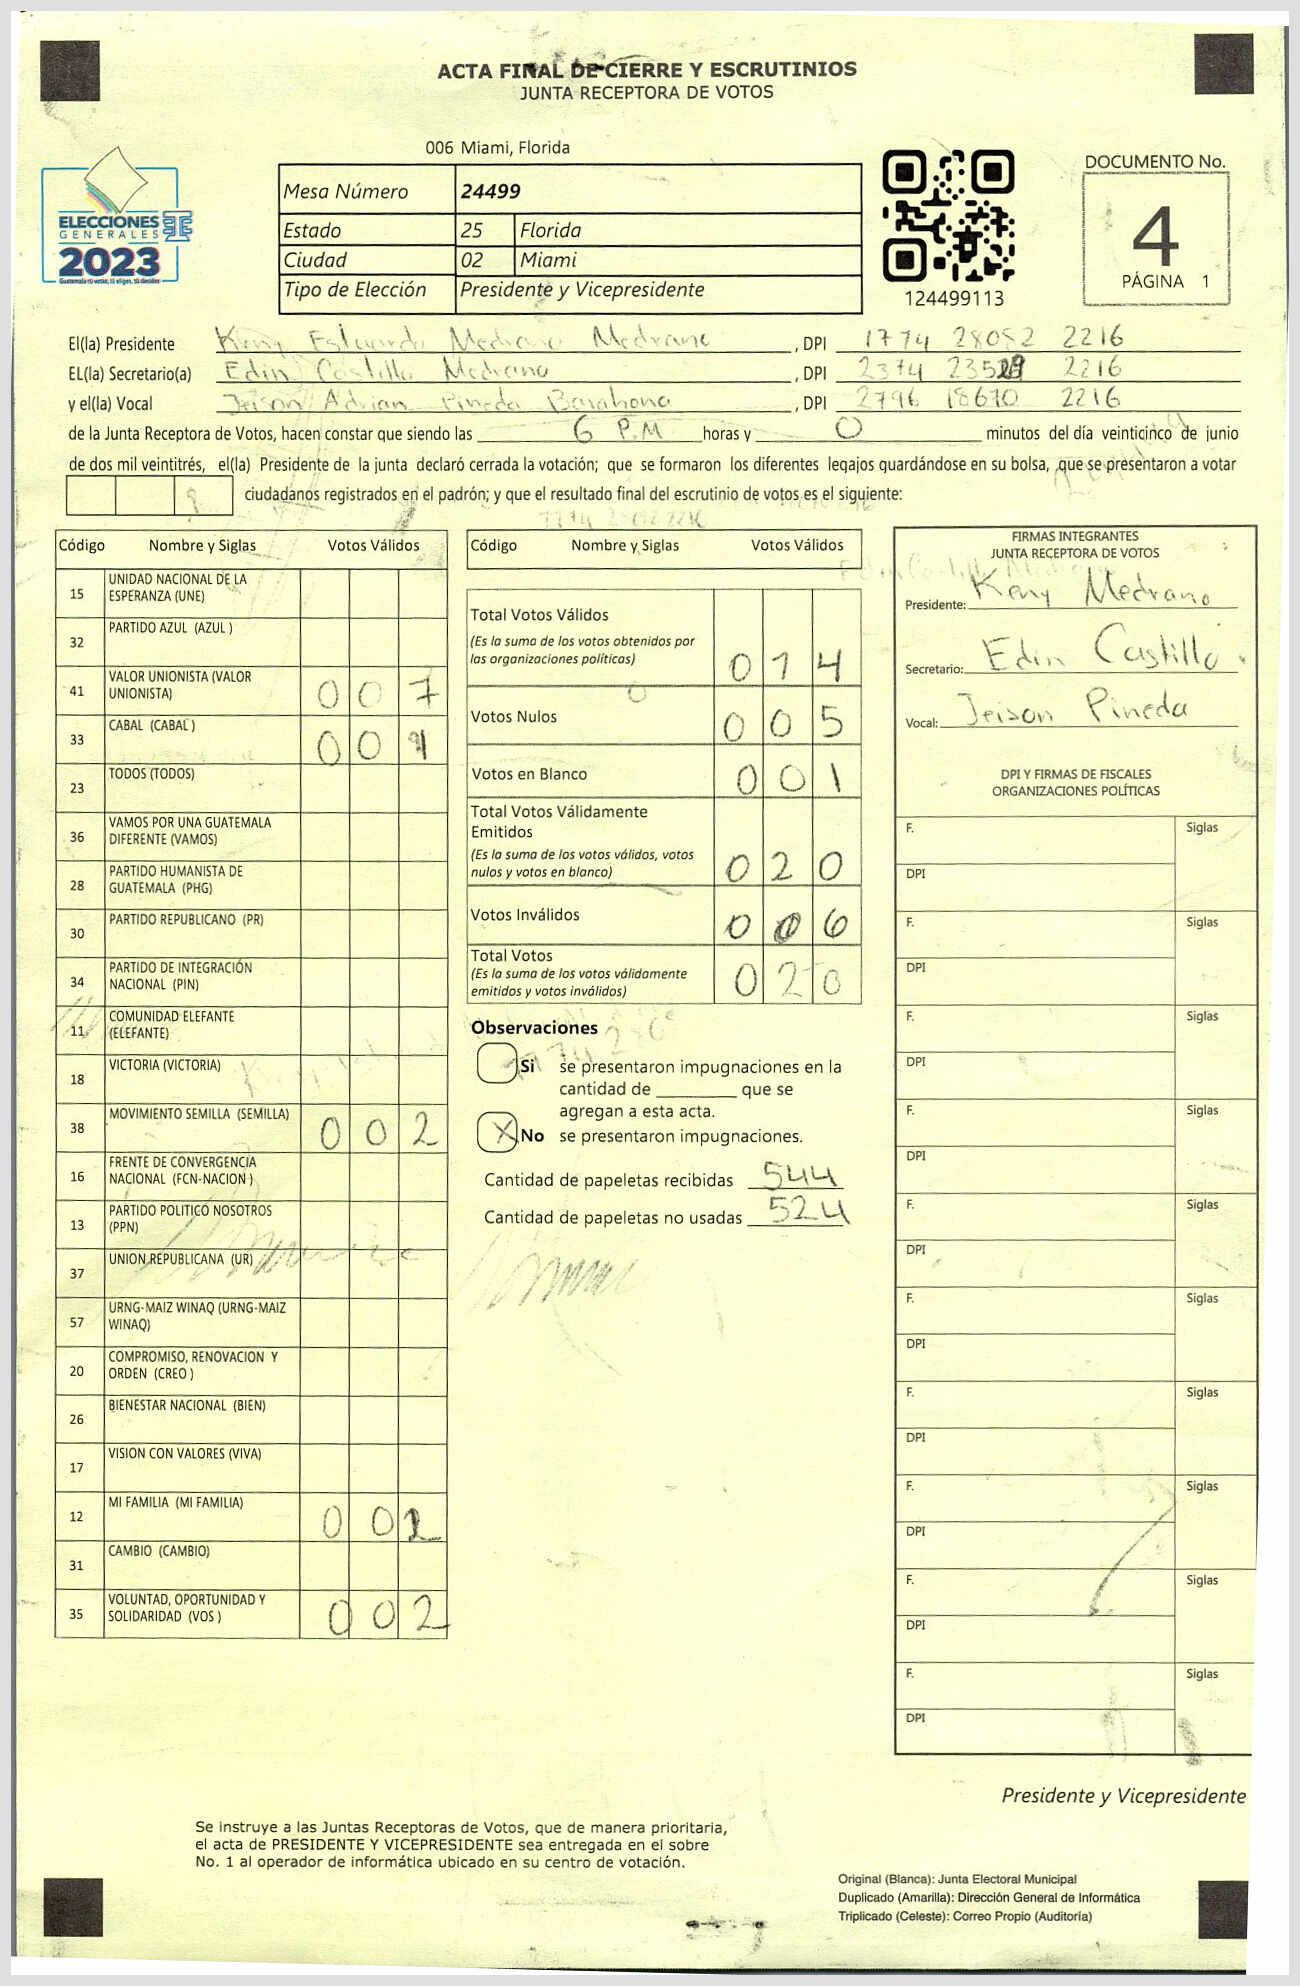 ACTA FINAL DE CIERRE Y ESCRUTINIOS
JUNTA RECEPTORA DE VOTOS
006 Miami, Florida
ELECCIONES
GENERALES
2023
Guatemala tú votas, tú eliges, tú decides
Mesa Número 24499
Estado 25 Florida
Ciudad 02 Miami
Tipo de Elección Presidente y Vicepresidente
124499113
DOCUMENTO No.
4
PÁGINA 1
El(la) Presidente Keny Estuardo Medrano Medrano, DPI 1774 28082 2216
EL(la) Secretario(a) Edin Castillo Medrano, DPI 2374 2216
y el(la) Vocal Jeison Adrian Pineda Barahona, DPI 2796 18670 2216
de la Junta Receptora de Votos, hacen constar que siendo las 6 P.M horas y 0 minutos del día veinticinco de junio
de dos mil veintitrés, el(la) Presidente de la junta declaró cerrada la votación; que se formaron los diferentes legajos guardándose en su bolsa, que se presentaron a votar
ciudadanos registrados en el padrón; y que el resultado final del escrutinio de votos es el siguiente:
Código Nombre y Siglas Votos Válidos
15 UNIDAD NACIONAL DE LA ESPERANZA (UNE)
32 PARTIDO AZUL (AZUL )
41 VALOR UNIONISTA (VALOR UNIONISTA) 0 0 7
33 CABAL (CABAL ) 0 0 1
23 TODOS (TODOS)
36 VAMOS POR UNA GUATEMALA DIFERENTE (VAMOS)
28 PARTIDO HUMANISTA DE GUATEMALA (PHG)
30 PARTIDO REPUBLICANO (PR)
34 PARTIDO DE INTEGRACIÓN NACIONAL (PIN)
11 COMUNIDAD ELEFANTE (ELEFANTE)
18 VICTORIA (VICTORIA)
38 MOVIMIENTO SEMILLA (SEMILLA) 0 0 2
16 FRENTE DE CONVERGENCIA NACIONAL (FCN-NACION )
13 PARTIDO POLITICO NOSOTROS (PPN)
37 UNION REPUBLICANA (UR)
57 URNG-MAIZ WINAQ (URNG-MAIZ WINAQ)
20 COMPROMISO, RENOVACION Y ORDEN (CREO )
26 BIENESTAR NACIONAL (BIEN)
17 VISION CON VALORES (VIVA)
12 MI FAMILIA (MI FAMILIA) 0 0
31 CAMBIO (CAMBIO)
35 VOLUNTAD, OPORTUNIDAD Y SOLIDARIDAD (VOS ) 0 0 2
Código Nombre y Siglas Votos Válidos
Total Votos Válidos
(Es la suma de los votos obtenidos por
las organizaciones políticas) 0 1 4
Votos Nulos 0 0 5
Votos en Blanco 0 0 1
Total Votos Válidamente
Emitidos
(Es la suma de los votos válidos, votos
nulos y votos en blanco) 0 2 0
Votos Inválidos 0 0 6
Total Votos
(Es la suma de los votos válidamente
emitidos y votos inválidos) 0 2 0
Observaciones
Si se presentaron impugnaciones en la
cantidad de ________ que se
agregan a esta acta.
X No se presentaron impugnaciones.
Cantidad de papeletas recibidas 544
Cantidad de papeletas no usadas 524
FIRMAS INTEGRANTES
JUNTA RECEPTORA DE VOTOS
Presidente: Keny Medrano
Secretario: Edin Castillo
Vocal: Jeison Pineda
DPI Y FIRMAS DE FISCALES
ORGANIZACIONES POLÍTICAS
F. Siglas
DPI
F. Siglas
DPI
F. Siglas
DPI
F. Siglas
DPI
F. Siglas
DPI
F. Siglas
DPI
F. Siglas
DPI
F. Siglas
DPI
F. Siglas
DPI
F. Siglas
DPI
Presidente y Vicepresidente
Se instruye a las Juntas Receptoras de Votos, que de manera prioritaria,
el acta de PRESIDENTE Y VICEPRESIDENTE sea entregada en el sobre
No. 1 al operador de informática ubicado en su centro de votación.
Original (Blanca): Junta Electoral Municipal
Duplicado (Amarilla): Dirección General de Informática
Triplicado (Celeste): Correo Propio (Auditoría)